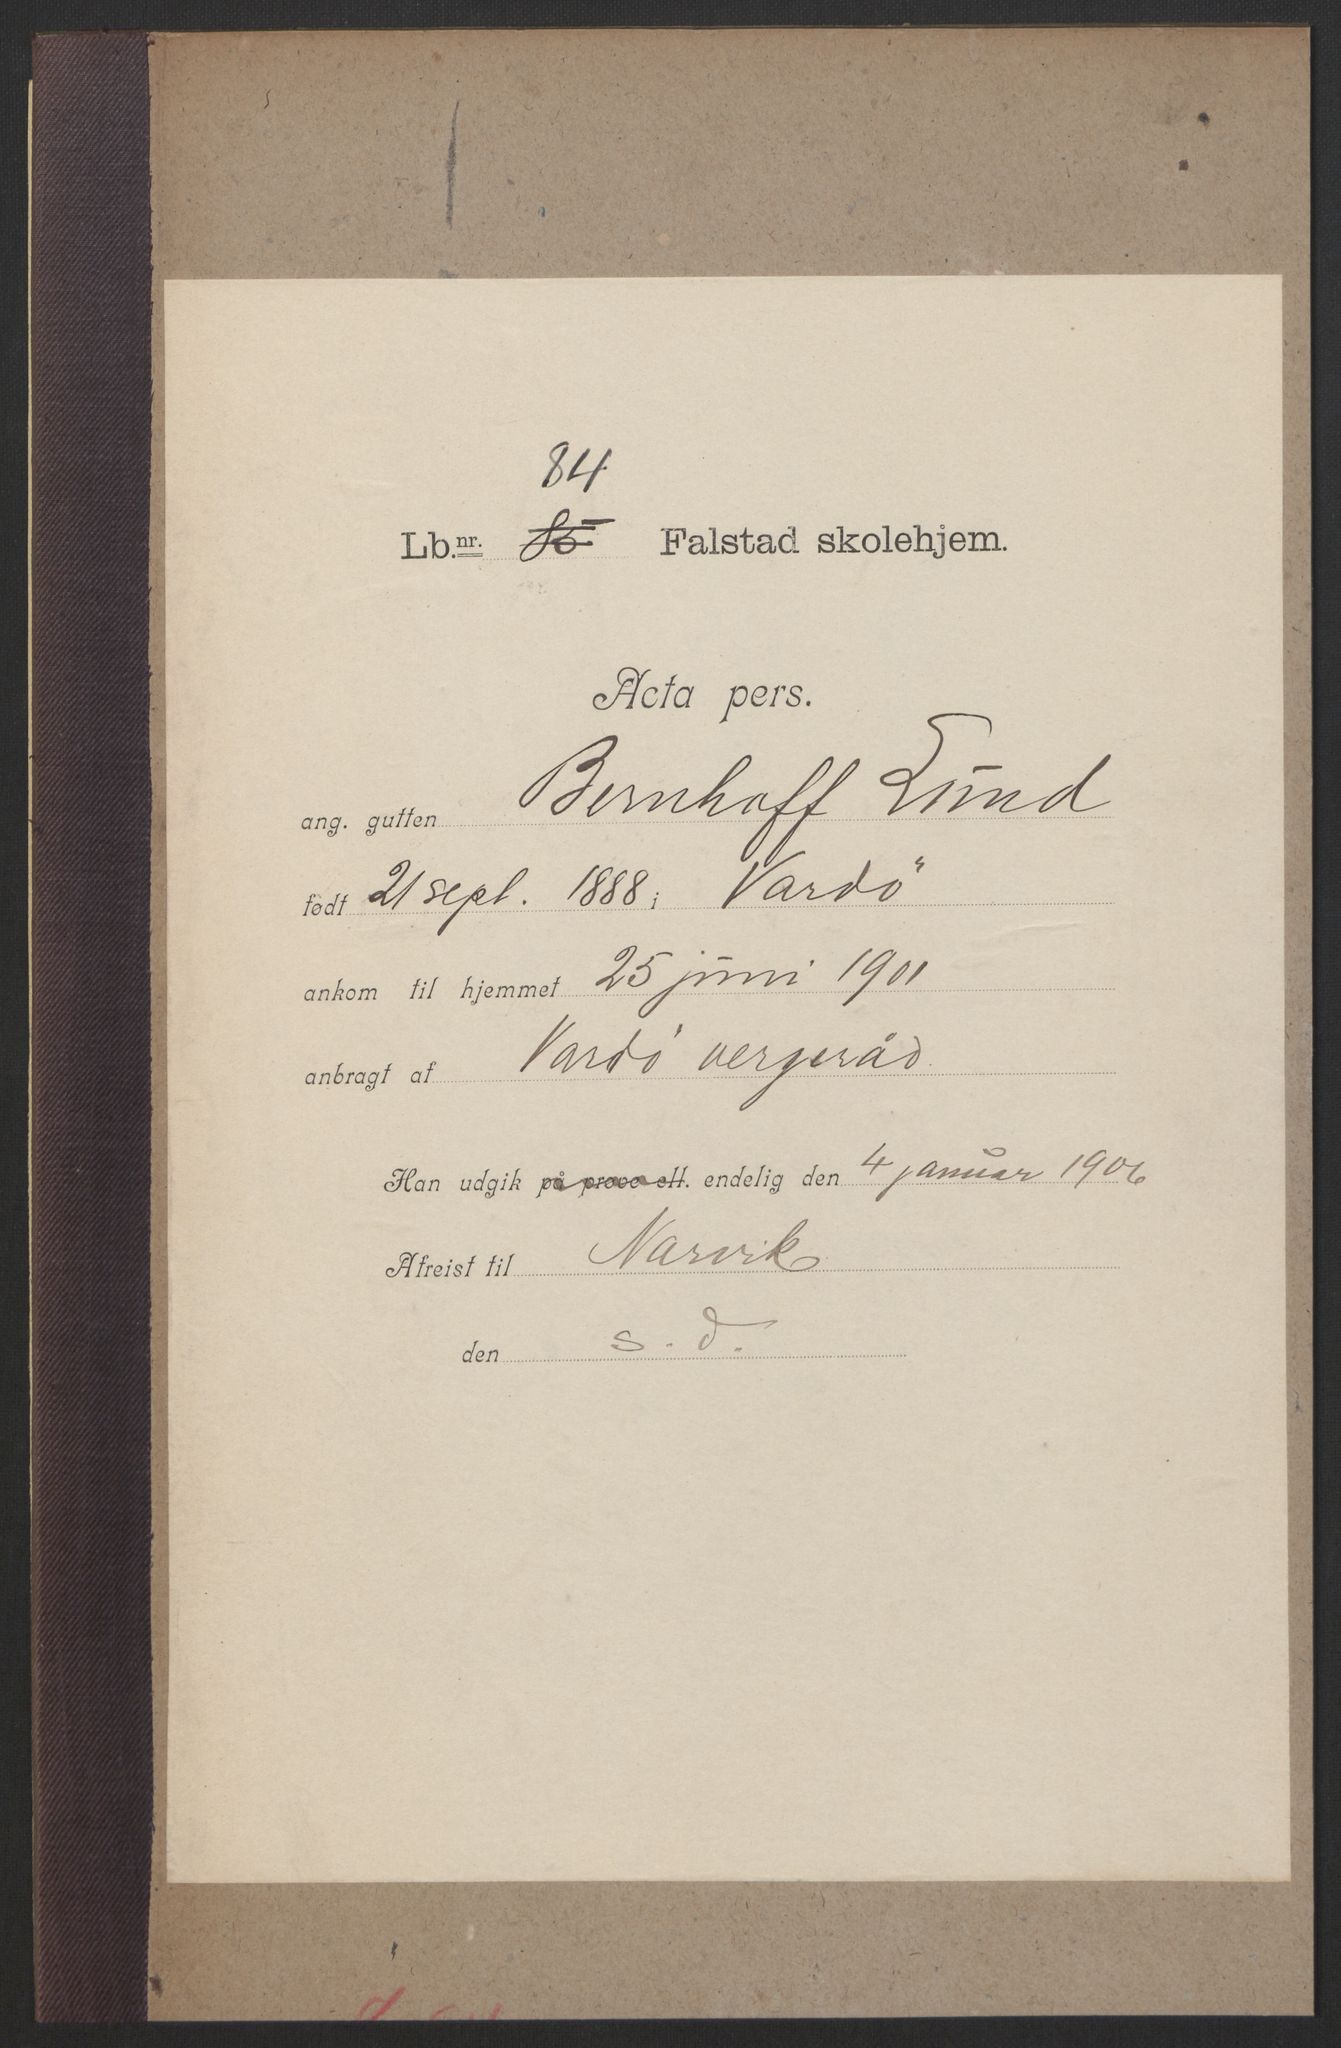 84
Lb.nr. 85 Falstad skolehjem.
Acta pers.
ang. gutten Bernhoff Lund
født 21 sept. 1888 i Vardö
ankom til hjemmet 25 juni 1901
anbragt af Vardö vergeråd.
Han udgik på prøve ell. endelig den 4 januar 1906
Afreist til Narvik
den s. d.